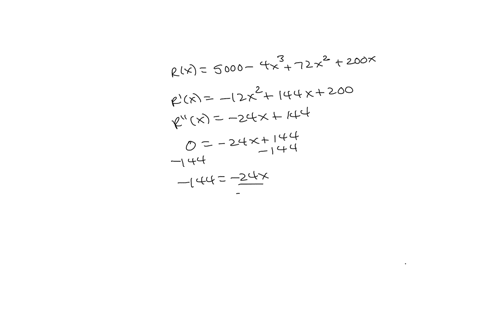 R(x) = 5000 - 4x³ + 72x² + 200x
R'(x) = -12x² + 144x + 200
R''(x) = -24x + 144
0 = -24x + 144
-144 -144
-144 = -24x